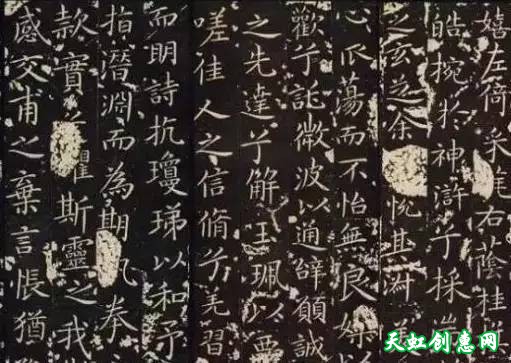 嬉左倚采旄右蔭桂
皓捥於神滸兮採湍
之玄芝余悅其淑
心蕩而不怡無良媒
歡兮託微波以通辭願誠
之先達兮解玉珮以要
嗟佳人之信脩兮羌習
而明詩抗瓊珶以和予
指潛淵而為期拳
款實懼斯靈之我
感交甫之棄言悵猶
天虹创意网